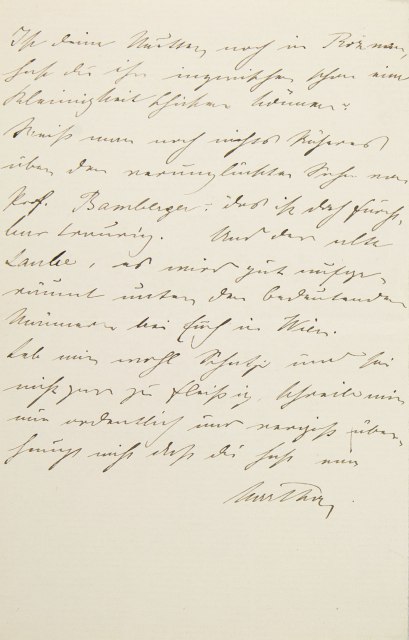 Ist deine Mutter noch in Rožnau,
hast du ihr inzwischen schon eine
Kleinigkeit schicken können?
Weiß man noch nichts Näheres
über den verunglückten Sohn von
Prof. Bamberger? das ist doch furcht-
bar traurig. Und der alte
Laube, es wird gut aufge-
räumt unter den bedeutenden
Männern bei Euch in Wien.
Leb mir wohl Schatz und sei
nicht gar zu fleißig, schreibe mir
nur ordentlich und vergiß über-
haupt nicht daß du hast eine
Martha.